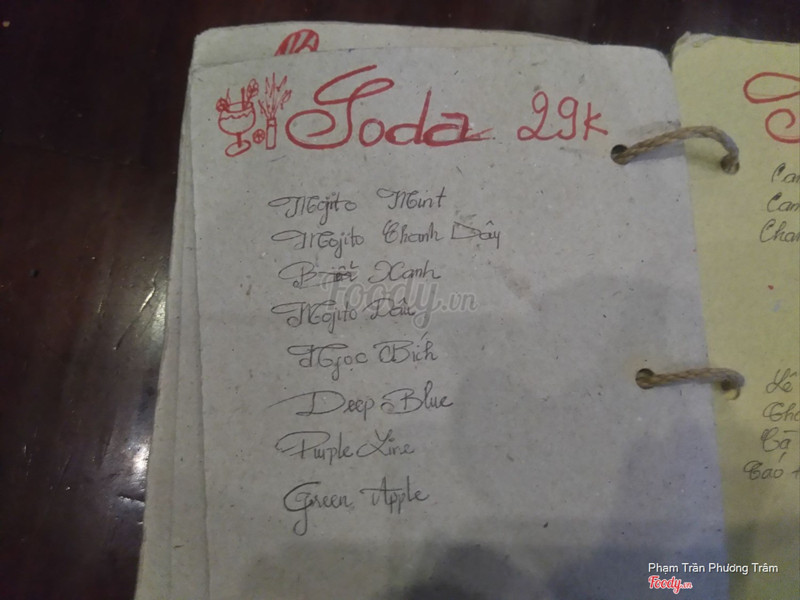 Soda 29k
Mojito Mint
Mojito Chanh Dây
Biển Xanh
Mojito Dâu
Ngọc Bích
Deep Blue
Purple Line
Green Apple
Cam
Chan
Lê
Cà
Táo
Foody.vn
Phạm Trần Phương Trâm
Foody.vn